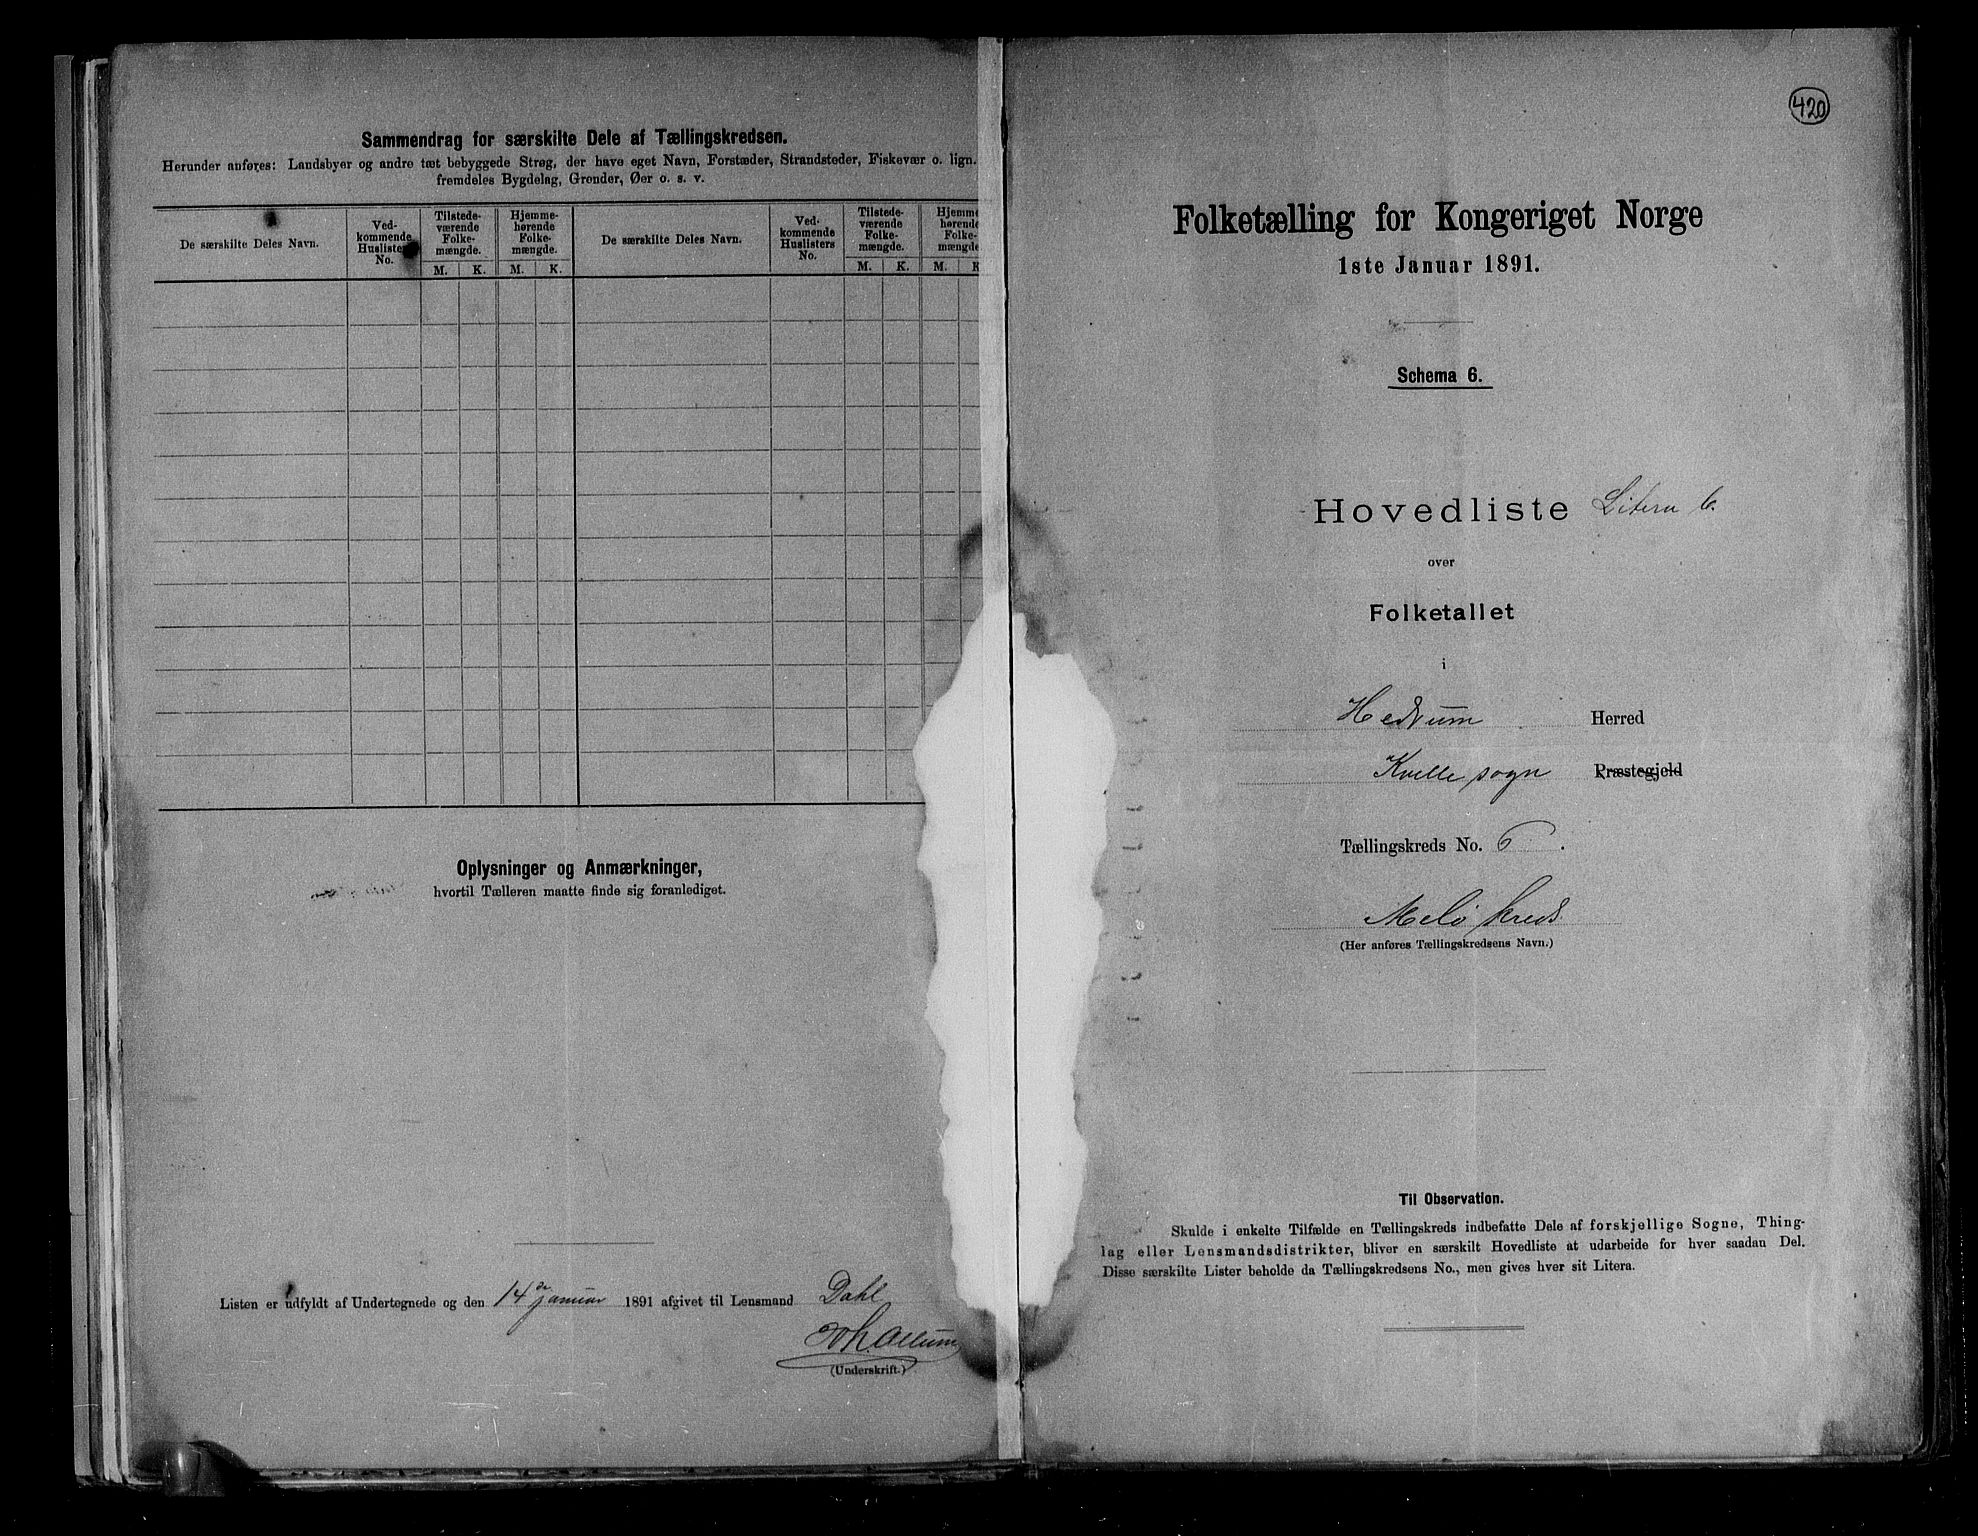 Sammendrag for særskilte Dele af Tællingskredsen.
Herunder anføres: Landsbyer og andre tæt bebyggede Strøg, der have eget Navn, Forstæder, Strandsteder, Fiskevær o. lign.
fremdeles Bygdelag, Grender, Øer o. s. v.
De særskilte Deles Navn.
Ved-
kommende
Huslisters
No.
Tilstede-
værende
Folke-
mængde.
M. K.
Hjemme-
hørende
Folke-
mængde.
M. K.
De særskilte Deles Navn.
Ved-
kommende
Huslisters
No.
Tilstede-
værende
Folke-
mængde.
M. K.
Hjemme
hørende
Folke-
mængde
M. K
Oplysninger og Anmærkninger,
hvortil Tælleren maatte finde sig foranlediget.
Listen er udfyldt af Undertegnede og den 14de Januar 1891 afgivet til Lensmand Dahl
(Underskrift.)
420
Folketælling for Kongeriget Norge
1ste Januar 1891.
Schema 6.
Hovedliste Litera
over
Folketallet
i
Hedrum Herred
Kvelle sogn Præstegjeld
Tællingskreds No. 6.
Melø kreds
(Her anføres Tællingskredsens Navn.)
Til Observation.
Skulde i enkelte Tilfælde en Tællingskreds indbefatte Dele af forskjellige Sogne, Thing-
lag eller Lensmandsdistrikter, bliver en særskilt Hovedliste at udarbeide for hver saadan Del.
Disse særskilte Lister beholde da Tællingskredsens No., men gives hver sit Litera.